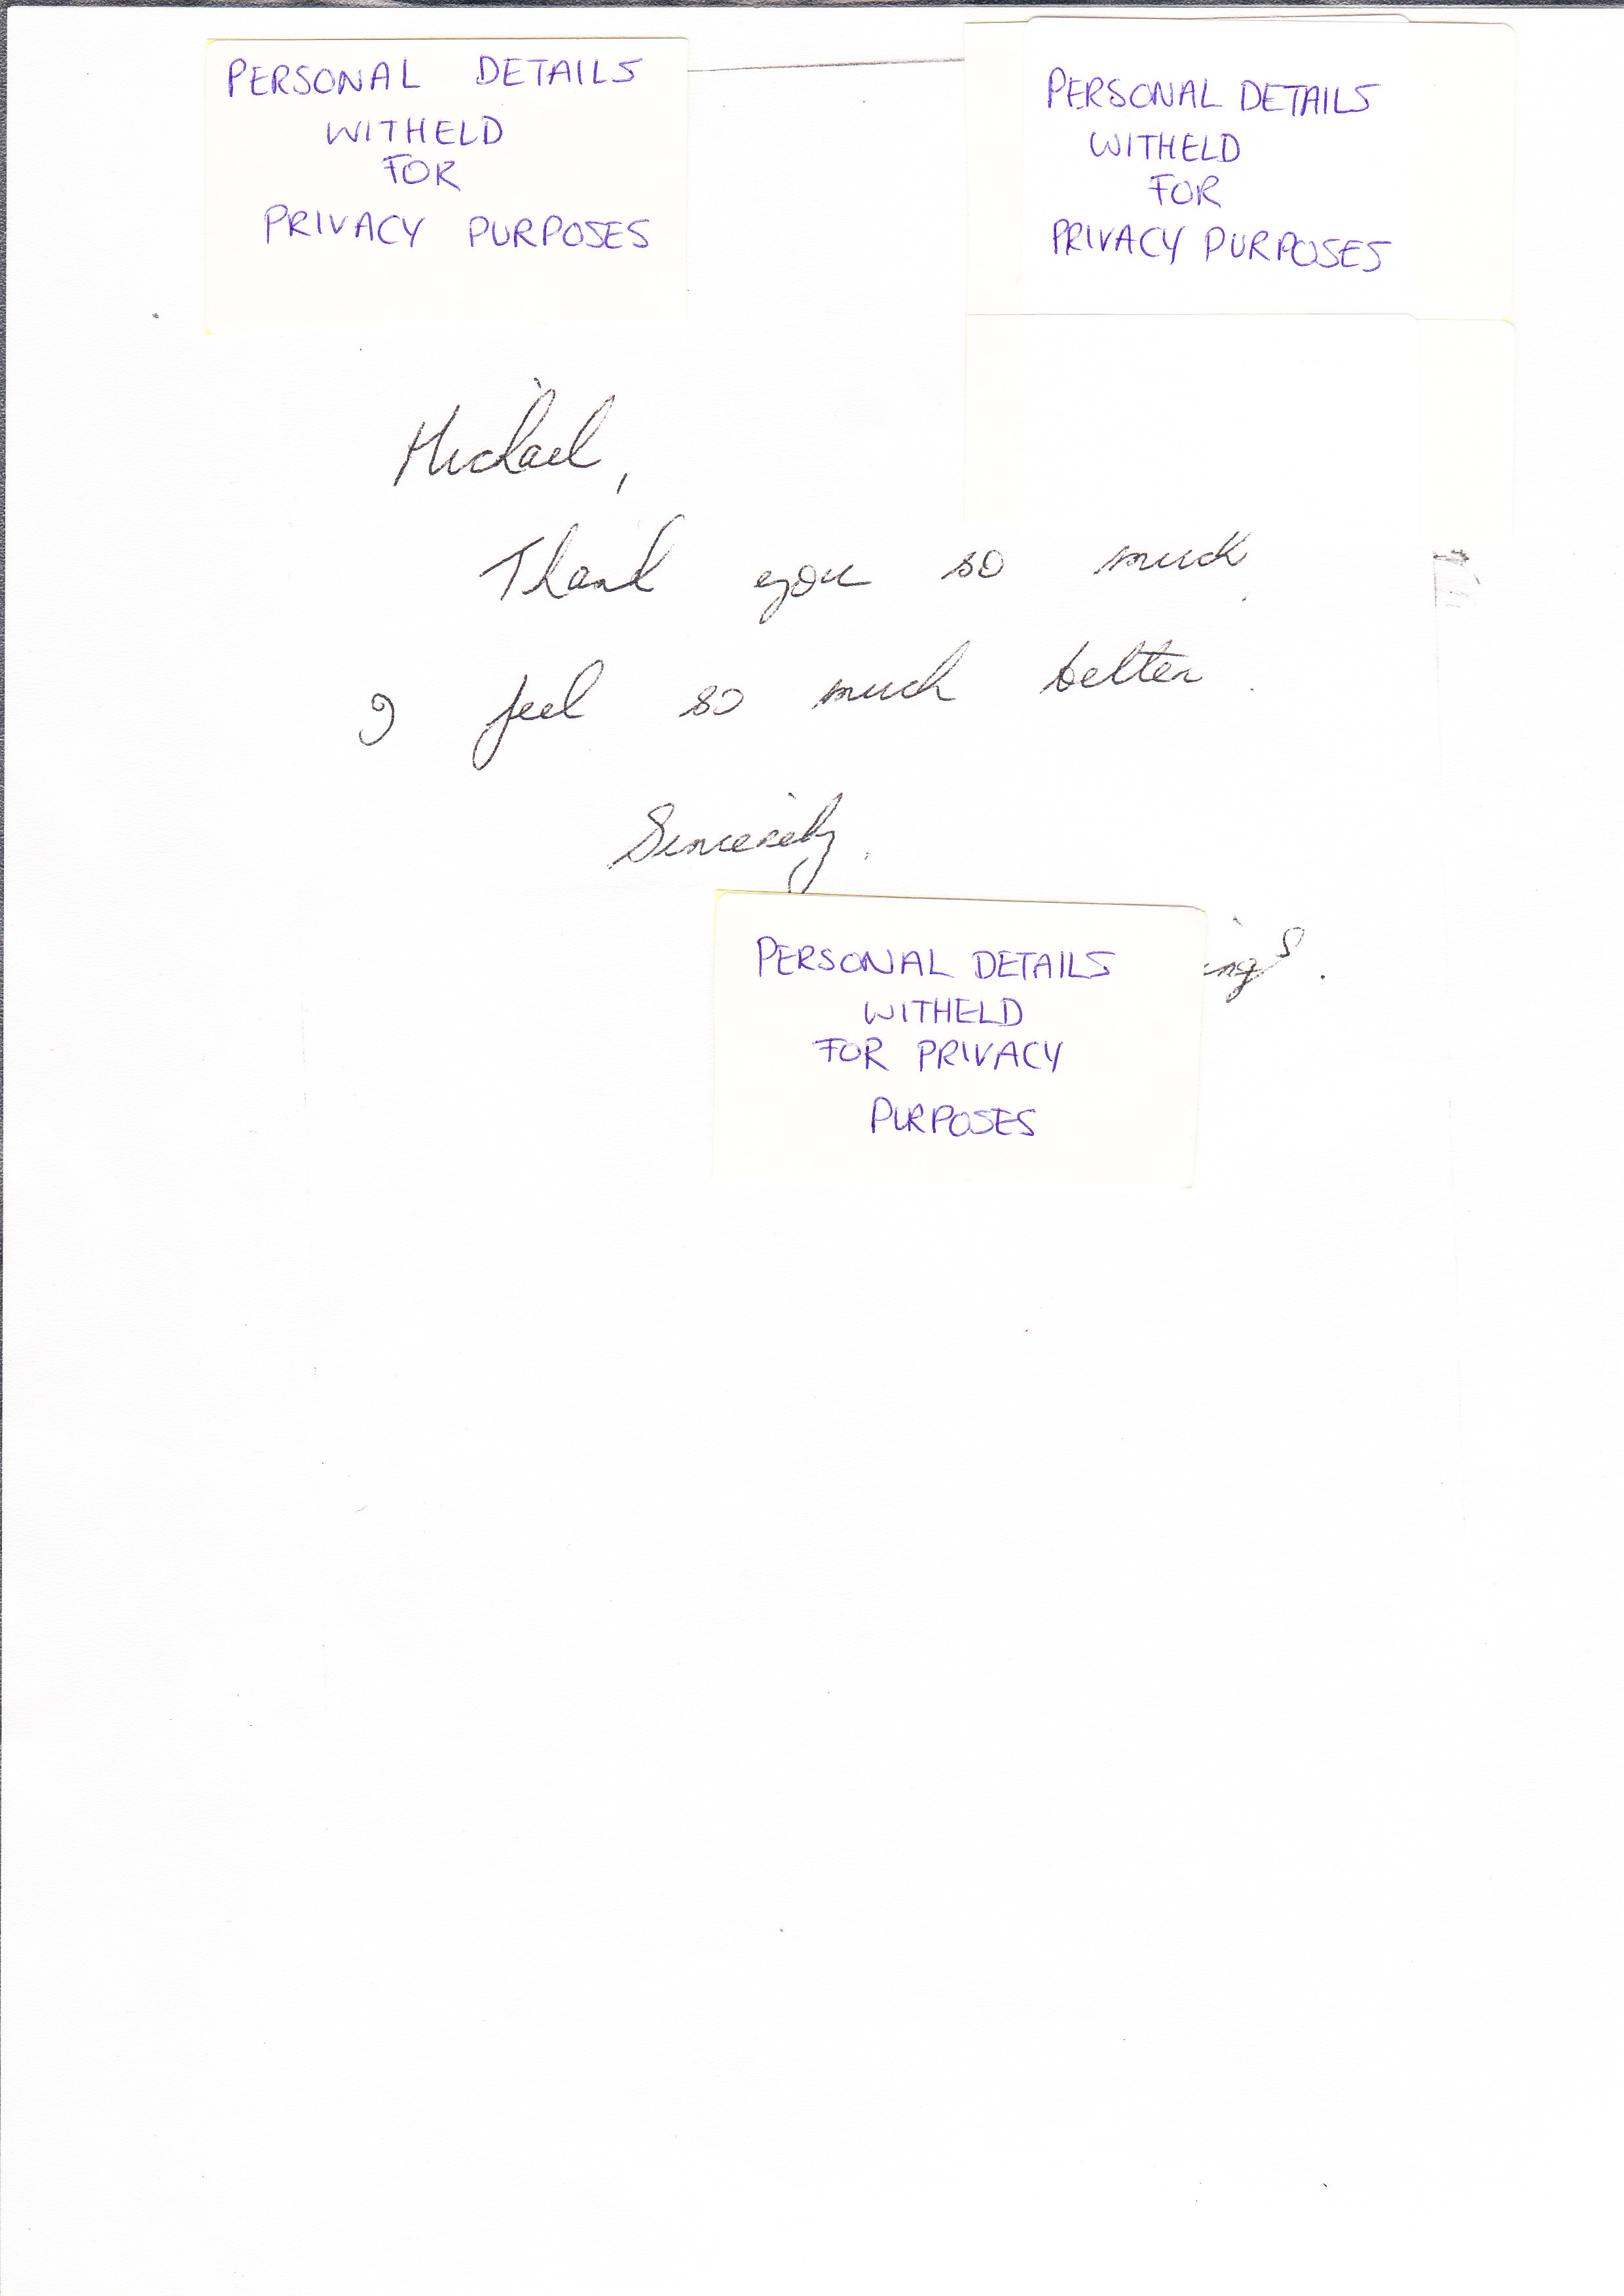 PERSONAL DETAILS
WITHELD
FOR
PRIVACY PURPOSES
PERSONAL DETAILS
WITHELD
FOR
PRIVACY PURPOSES
Michael,
Thank you so much.
I feel so much better.
Sincerely.
PERSONAL DETAILS
WITHELD
FOR PRIVACY
PURPOSES